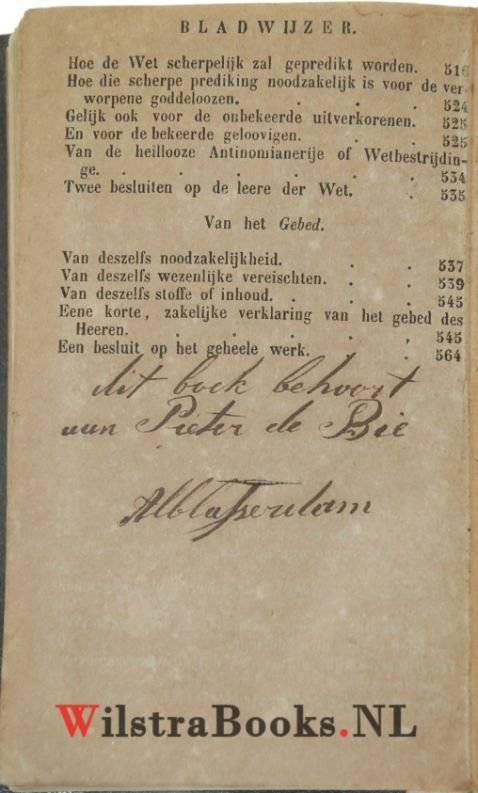 BLADWIJZER.
Hoe de Wet scherpelijk zal gepredikt worden. 516
Hoe die scherpe prediking noodzakelijk is voor de ver-
worpene goddeloozen. . . . 524
Gelijk ook voor de onbekeerde uitverkorenen. 525
En voor de bekeerde geloovigen. . . 525
Van de heillooze Antinomianerije of Wetbestrijdin-
ge. . . . . . . 534
Twee besluiten op de leere der Wet. . 535
Van het Gebed.
Van deszelfs noodzakelijkheid. . . 537
Van deszelfs wezenlijke vereischten. . . 539
Van deszelfs stoffe of inhoud. . . . 545
Eene korte, zakelijke verklaring van het gebed des
Heeren. . . . . . 545
Een besluit op het geheele werk. . . 564
dit boek behoort
aan Pieter de Bie
Alblasserdam
WilstraBooks.NL